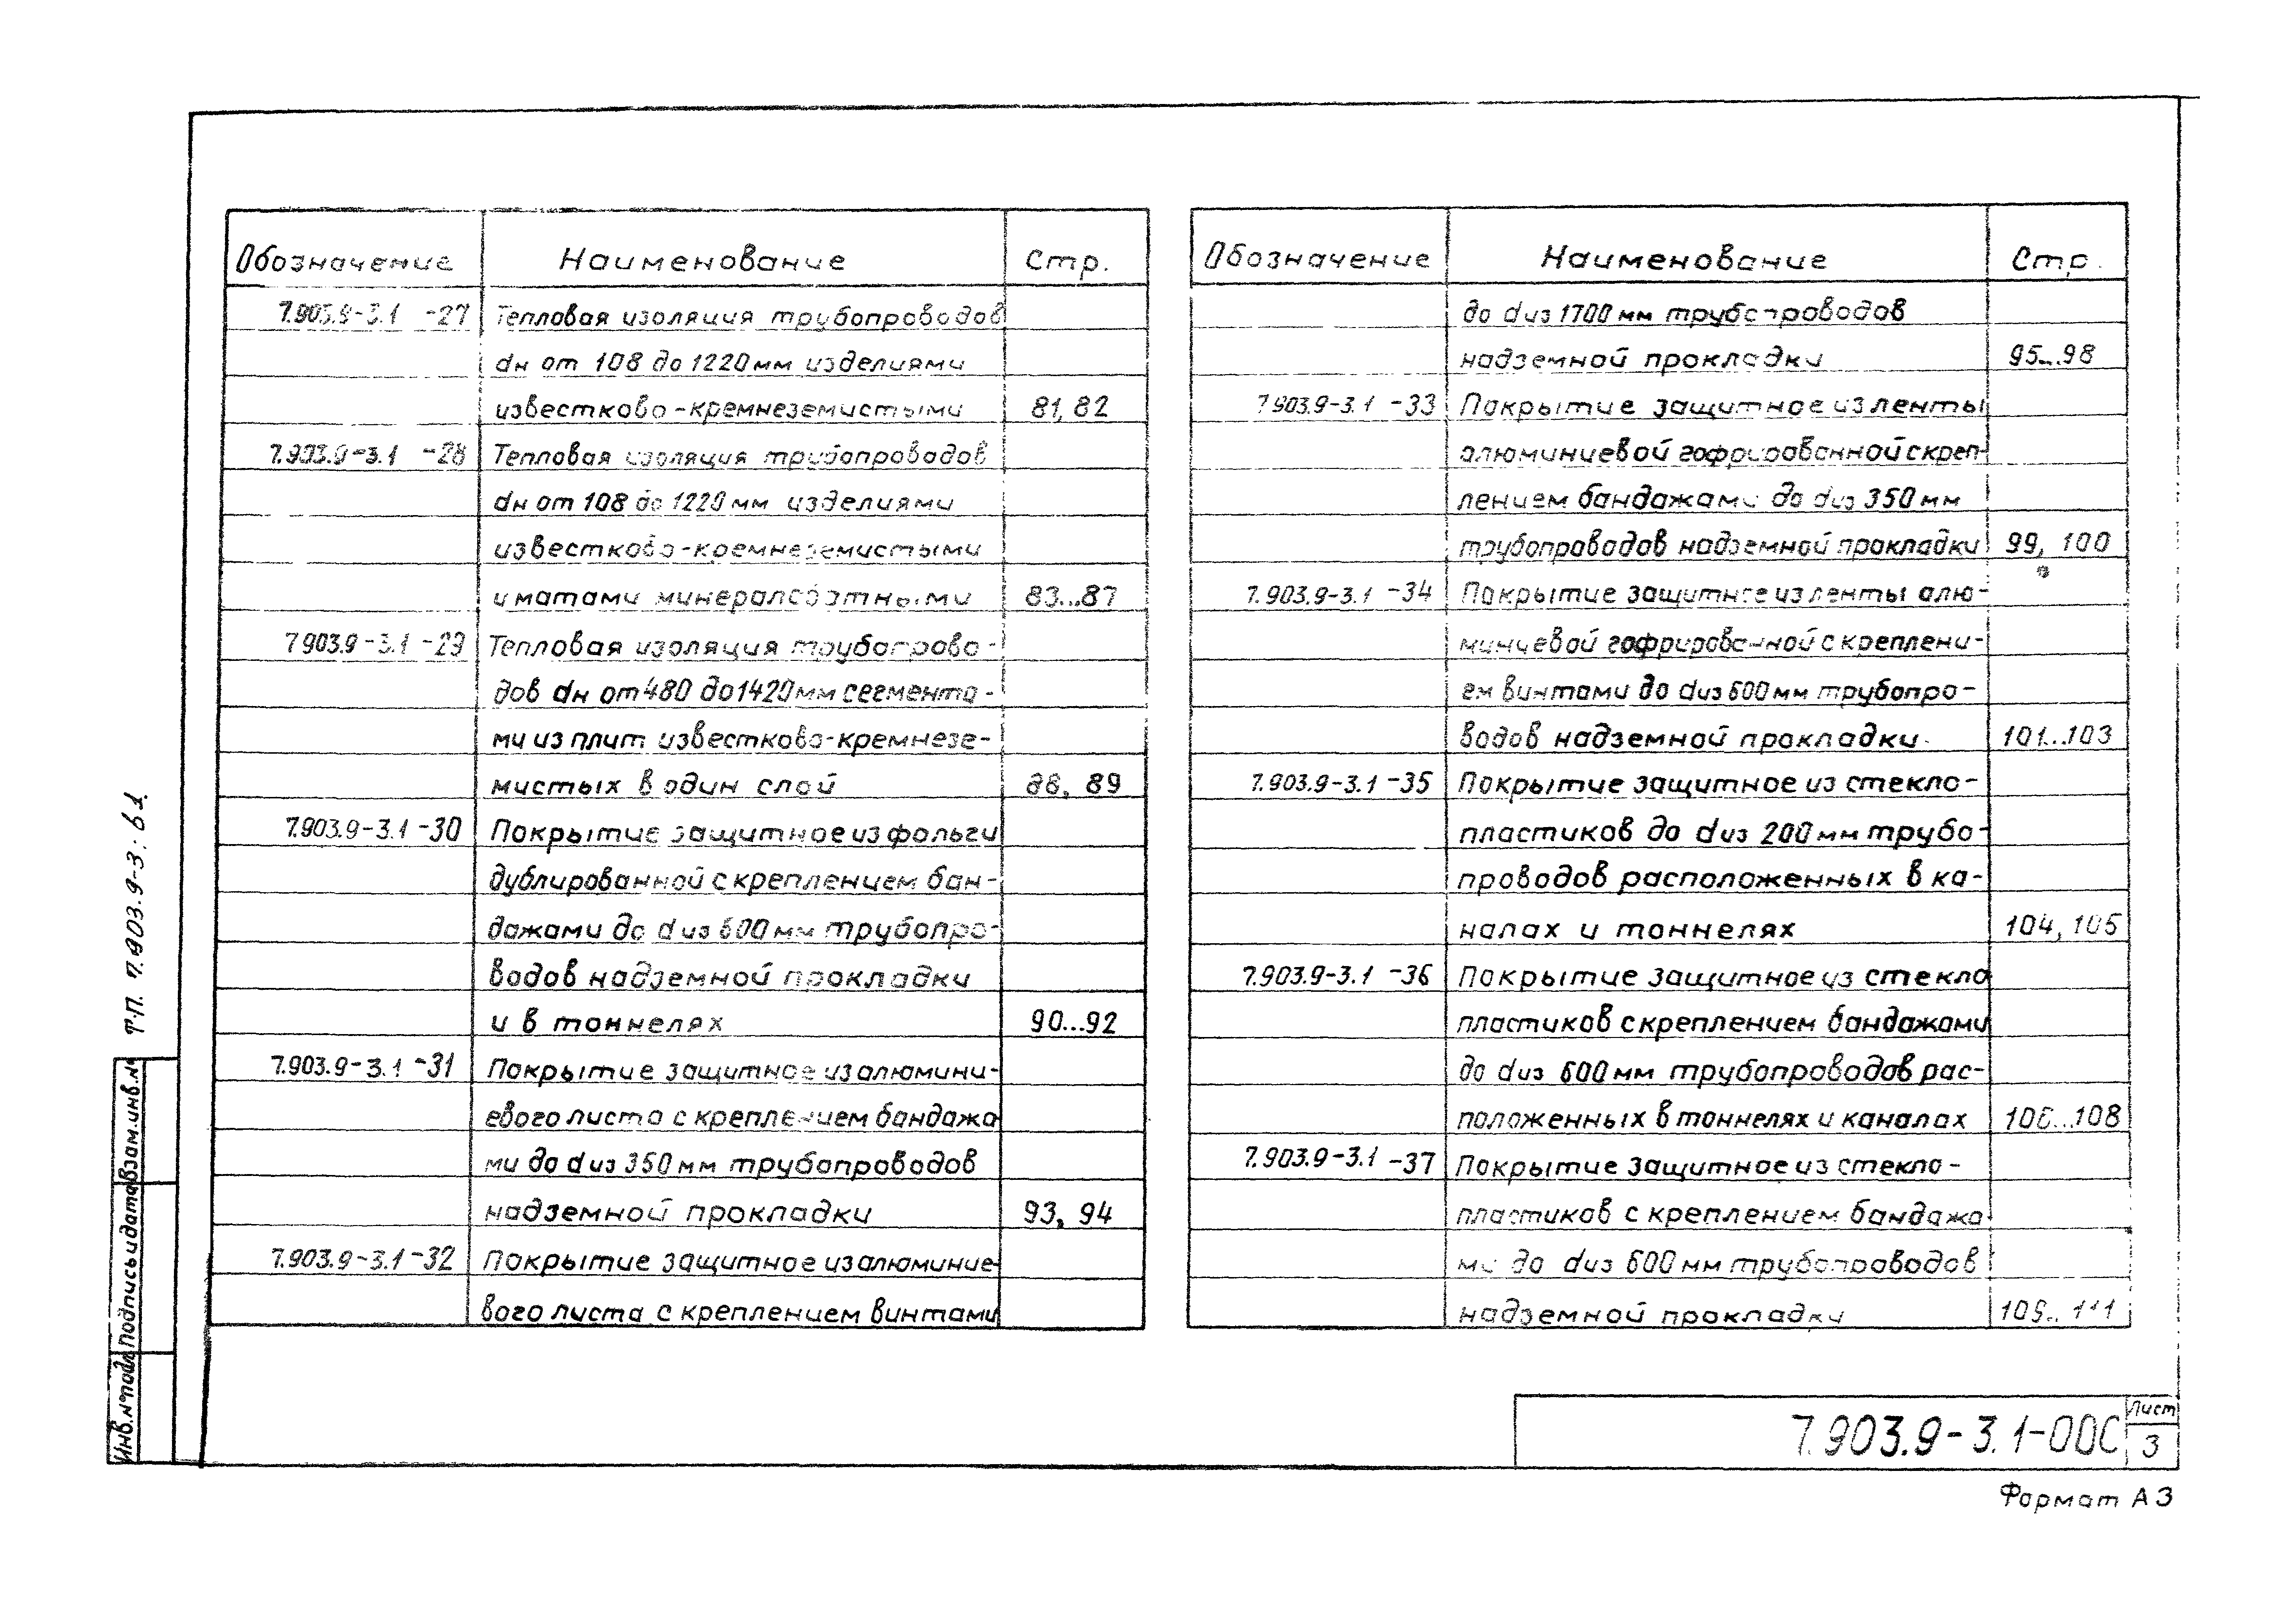 Обозначение Наименование Стр.
7.903.9-3.1 -27 Тепловая изоляция трубопроводов
dн от 108 до 1220мм изделиями
известково-кремнеземистыми 81, 82
7.903.9-3.1 -28 Тепловая изоляция трубопроводов
dн от 108 до 1220мм изделиями
известково-кремнеземистыми
и матами минераловатными 83...87
7.903.9-3.1 -29 Тепловая изоляция трубопрово-
дов dн от 480 до 1420мм сегмента-
ми из плит известково-кремнезе-
мистых в один слой 88, 89
7.903.9-3.1-30 Покрытие защитное из фольги
дублированной с креплением бан-
дажами до dиз 600мм трубопро-
водов надземной прокладки
и в тоннелях 90...92
7.903.9-3.1-31 Покрытие защитное из алюмини-
евого листа с креплением бандажа
ми до dиз 350мм трубопроводов
надземной прокладки 93, 94
7.903.9-3.1-32 Покрытие защитное из алюминие-
вого листа с креплением винтами
Обозначение Наименование Стр.
до dиз 1700мм трубопроводов
надземной прокладки 95...98
7.903.9-3.1 -33 Покрытие защитное из ленты
алюминиевой гофрированной с креп-
лением бандажами до dиз 350мм
трубопроводов надземной прокладки 99, 100
7.903.9-3.1 -34 Покрытие защитное из ленты алю-
миниевой гофрированной с креплени-
ем винтами до dиз 600мм трубопро-
водов надземной прокладки 101...103
7.903.9-3.1 -35 Покрытие защитное из стекло-
пластиков до dиз 200мм трубо-
проводов расположенных в ка-
налах и тоннелях 104, 105
7.903.9-3.1 -36 Покрытие защитное из стекло
пластиков с креплением бандажами
до dиз 600мм трубопроводов рас-
положенных в тоннелях и каналах 106...108
7.903.9-3.1 -37 Покрытие защитное из стекло-
пластиков с креплением бандажа-
ми до dиз 600мм трубопроводов
надземной прокладки 109...111
Т.П. 7.903.9-3. в 1
Взам.инв.№
Подпись и дата
Инв.№подл.
7.903.9-3.1-00С
Лист
3
Формат А3